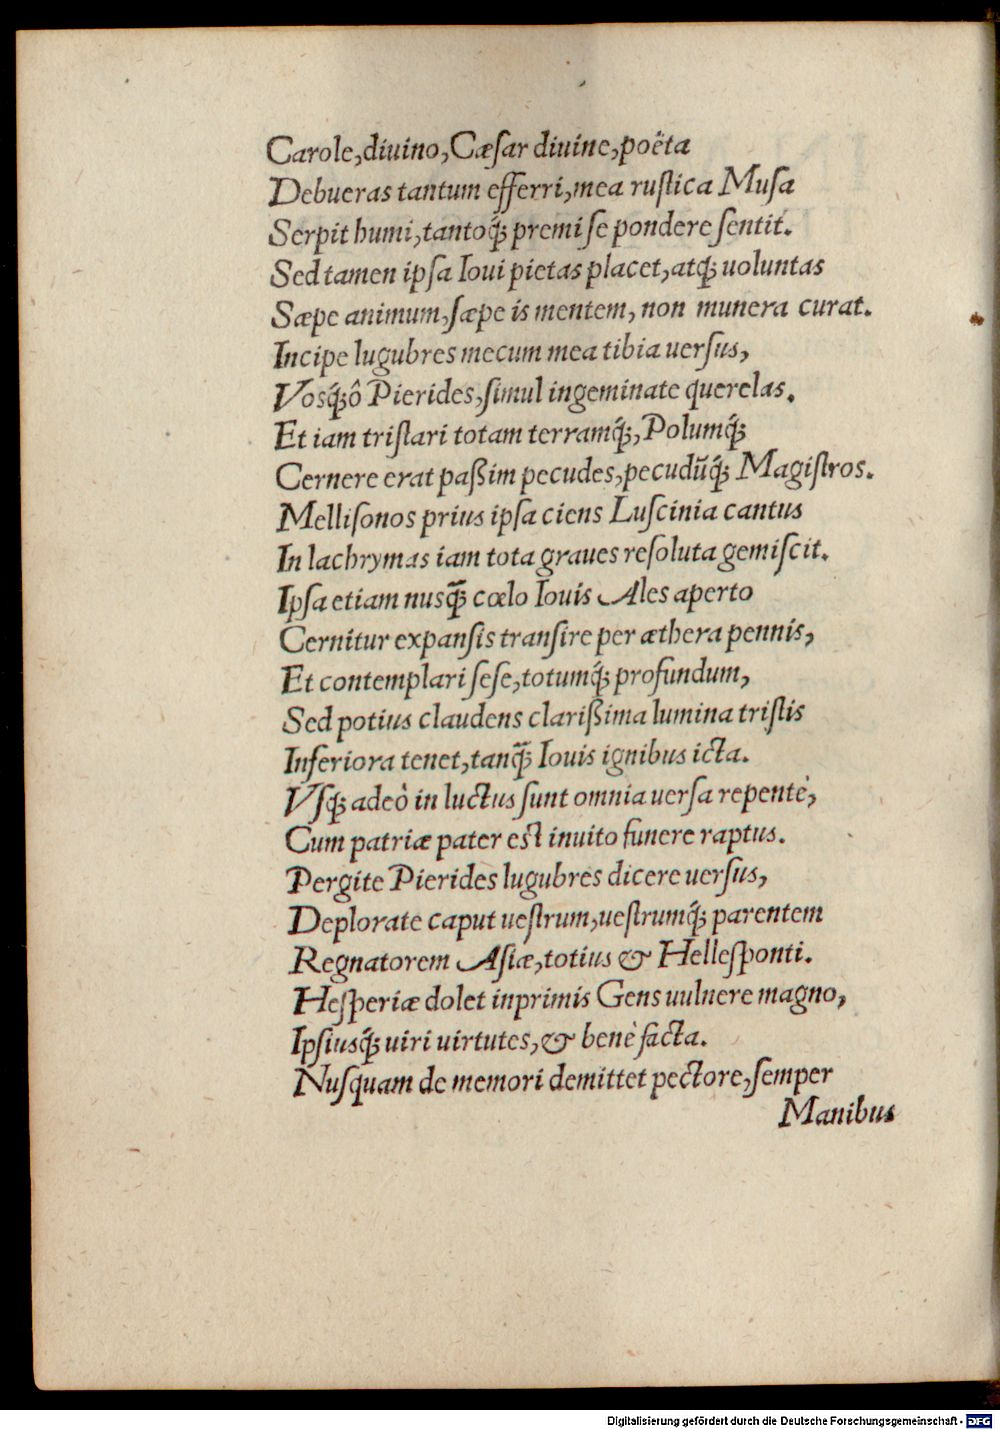 Carole,diuino,Cæſar diuine,poëta
Debueras tantum efferri,mea ruſtica Muſa
Serpit humi,tantoq́; premi ſe pondere ſentit.
Sed tamen ipſa Ioui pietas placet,atq; uoluntas
Sæpe animum,ſæpe is mentem, non munera curat.
Incipe lugubres mecum mea tibia uerſus,
Vosq́;ô Pierides,ſimul ingeminate querelas.
Et iam triſtari totam terramq́;,Polumq́;
Cernere erat paßim pecudes,pecudũq́; Magiſtros.
Melliſonos prius ipſa ciens Luſcinia cantus
In lachrymas iam tota graues reſoluta gemiſcit.
Ipſa etiam nusq̃; cœlo Iouis Ales aperto
Cernitur expanſis tranſire per æthera pennis,
Et contemplari ſeſe,totumq́; profundum,
Sed potius claudens clarißima lumina triſtis
Inferiora tenet,tanq̃; Iouis ignibus icta.
Vſq; adeò in luctus ſunt omnia uerſa repentè,
Cum patriæ pater eſt inuito funere raptus.
Pergite Pierides lugubres dicere uerſus,
Deplorate caput ueſtrum,ueſtrumq́; parentem
Regnatorem Aſiæ,totius & Helleſponti.
Heſperiæ dolet inprimis Gens uulnere magno,
Ipſiusq́; uiri uirtutes,& benè facta.
Nuſquam de memori demittet pectore,ſemper
Manibus
Digitalisierung gefördert durch die Deutsche Forschungsgemeinschaft - DFG